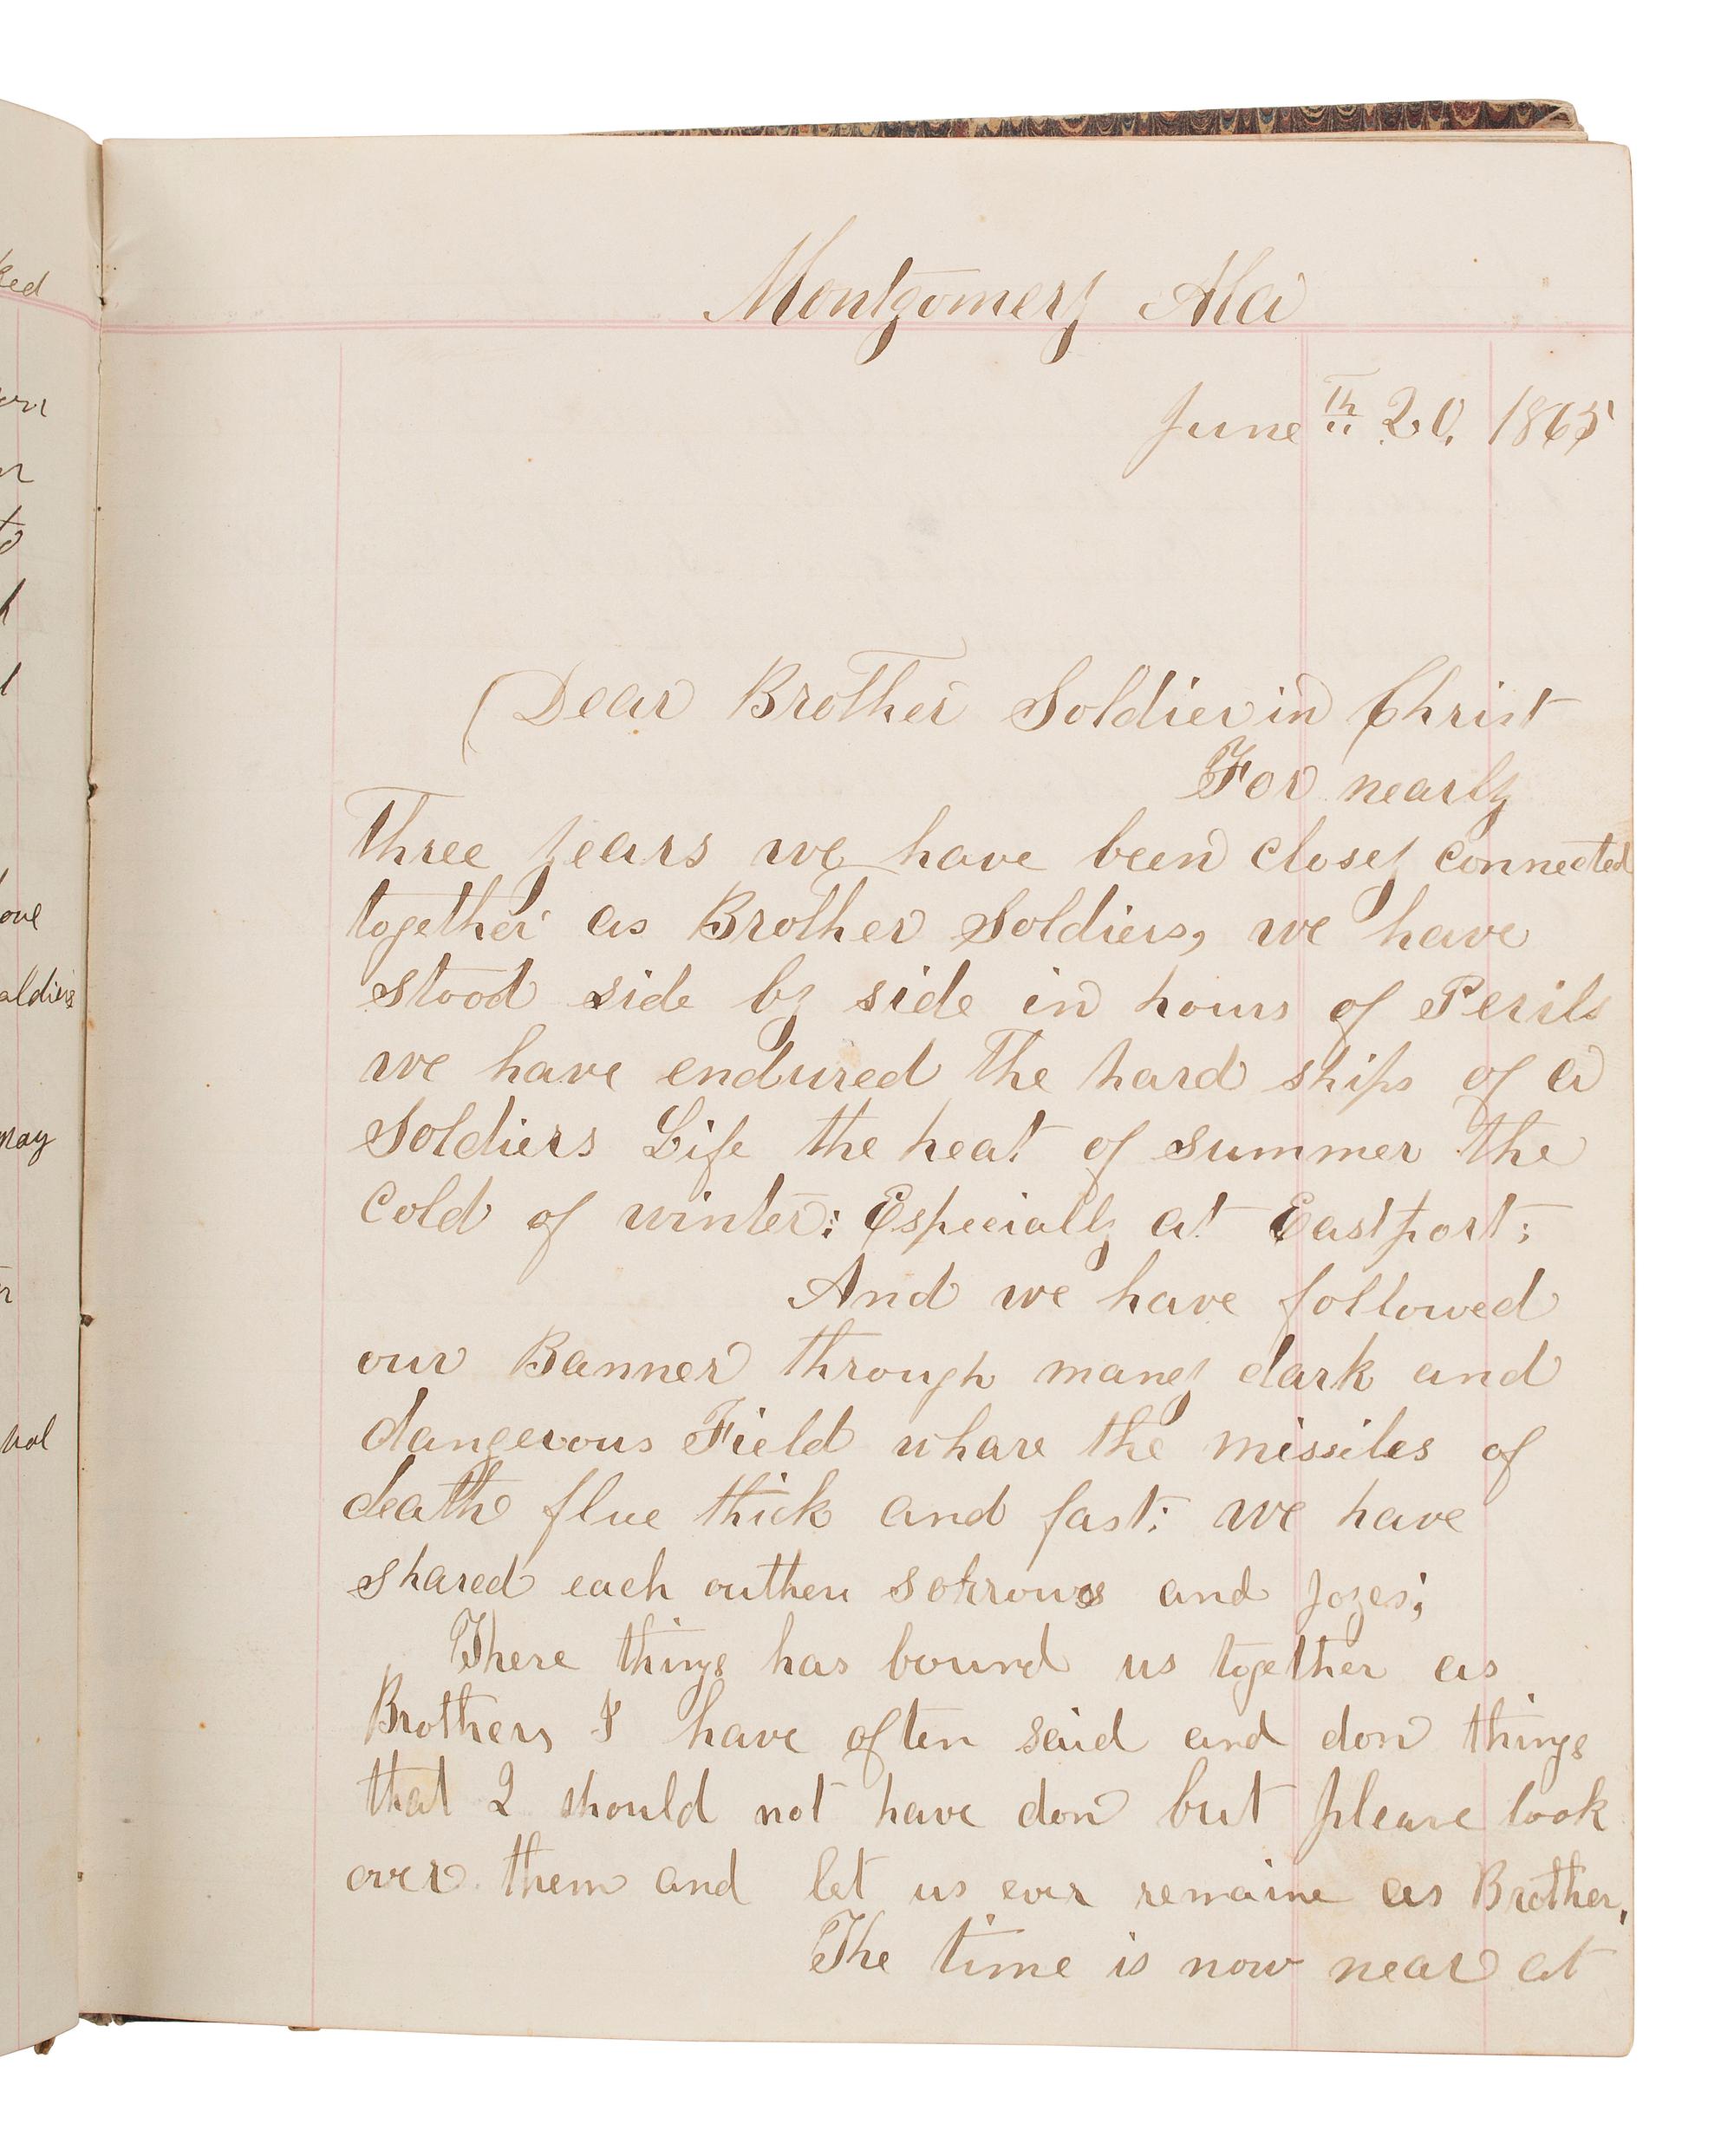 Montgomery Ala
June th 20, 1865
Dear Brother Soldier in Christ
For nearly
three years we have been closey connected
together as Brother Soldiers, we have
stood side by side in hours of Perils
we have endured the hard ships of a
Soldiers Life the heat of summer the
Cold of winter: Especially at Eastport;
And we have followed
our Banner through many dark and
dangerous Field whare the missiles of
death flue thick and fast: we have
shared each outher sorrows and joyes;
These things has bound us together as
Brothers I have often said and don things
that I should not have don but please look
over them and let us ever remaine as Brother,
The time is now near at
ked
to
ove
oldiers
may